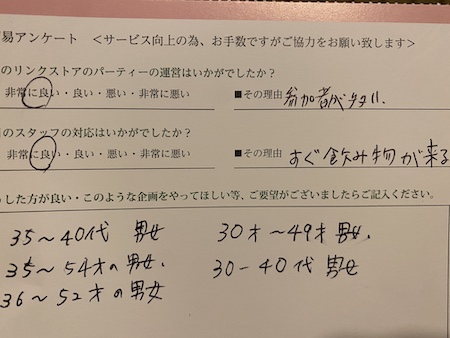 易アンケート <サービス向上の為、お手数ですがご協力をお願い致します>
のリンクストアのパーティーの運営はいかがでしたか?
非常に良い・良い・悪い・非常に悪い ■その理由 参加者が多い.
のスタッフの対応はいかがでしたか?
非常に良い・良い・悪い・非常に悪い ■その理由 すぐ飲み物が来る
した方が良い・このような企画をやってほしい等、ご要望がございましたらご記入ください。
35~40代 男女 30才~49才 男女.
35~54才の男女. 30-40代 男女
36~52才の男女